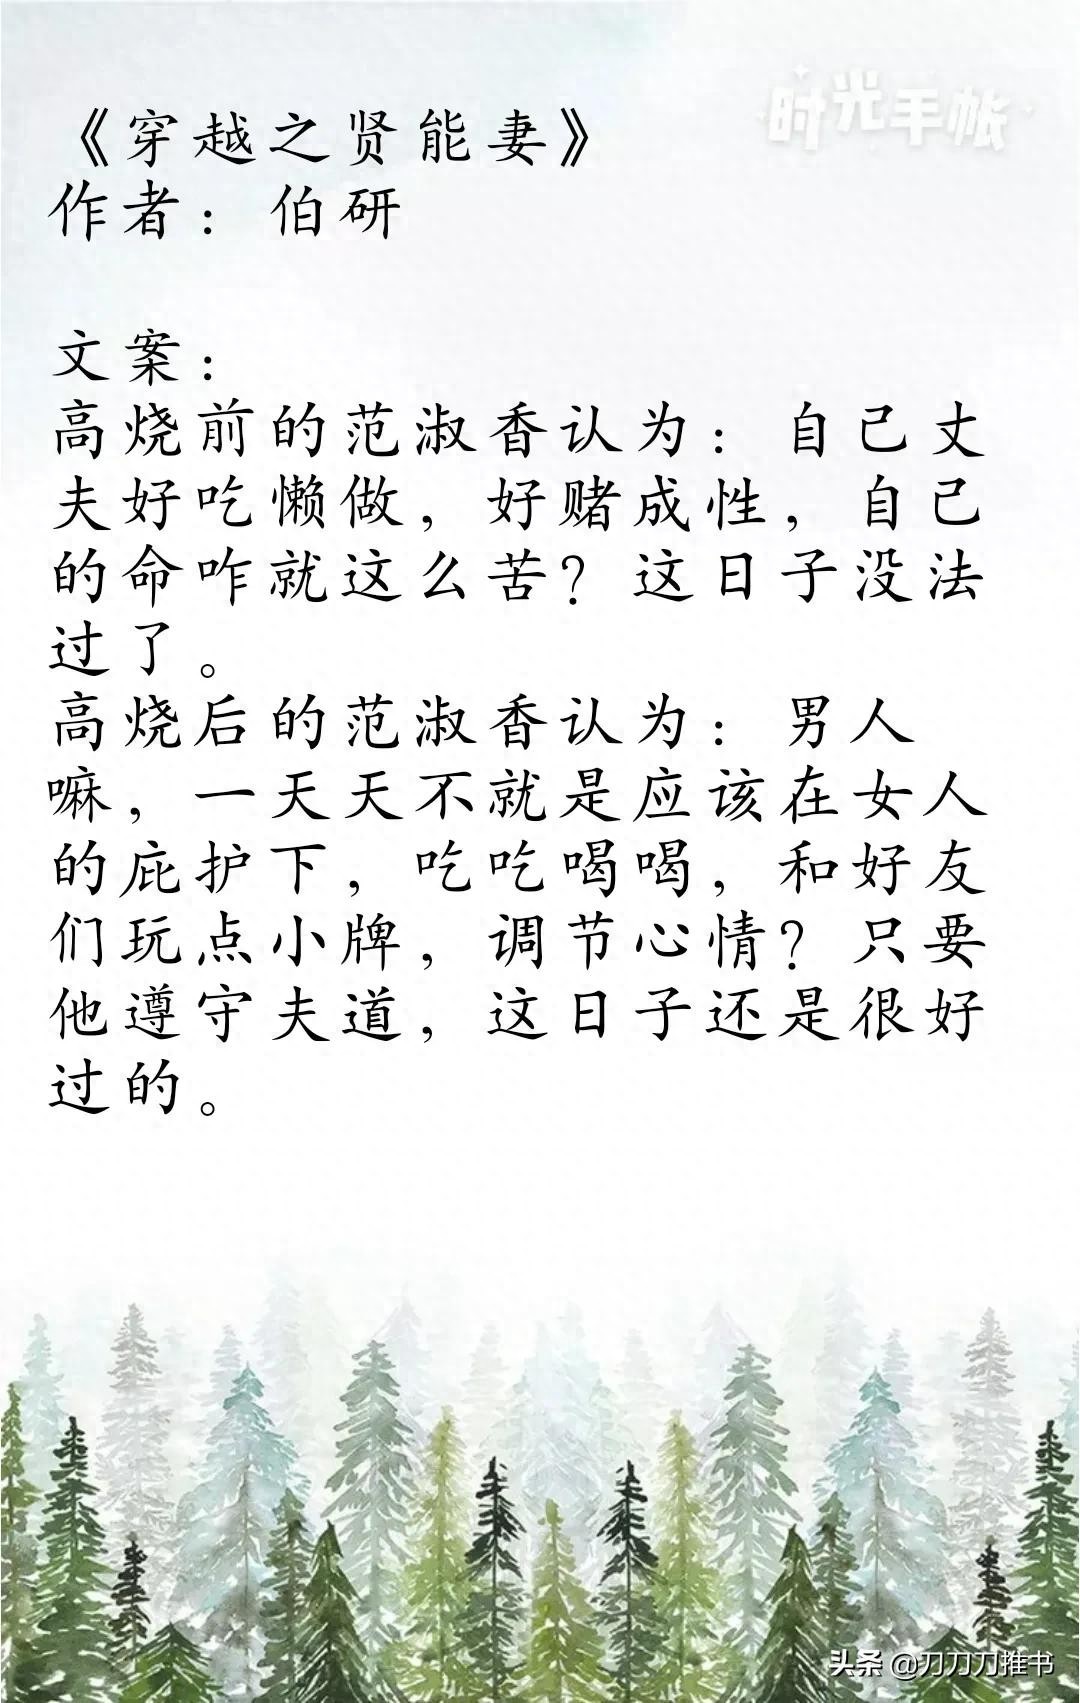 时光手帐
《穿越之贤能妻》
作者：伯研
文案：
高烧前的范淑香认为：自己丈
夫好吃懒做，好赌成性，自己
的命咋就这么苦？这日子没法
过了。
高烧后的范淑香认为：男人
嘛，一天天不就是应该在女人
的庇护下，吃吃喝喝，和好友
们玩点小牌，调节心情？只要
他遵守夫道，这日子还是很好
过的。
头条 @刀刀刀推书